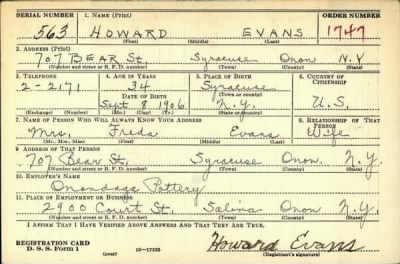 SERIAL NUMBER 1. NAME (Print) ORDER NUMBER
563 HOWARD EVANS 1747
(First) (Middle) (Last)
2. ADDRESS (Print)
707 BEAR St. Syracuse Onon N.Y
(Number and street or R. F. D. number) (Town) (County) (State)
3. TELEPHONE 4. AGE IN YEARS 5. PLACE OF BIRTH 6. COUNTRY OF CITIZENSHIP
2-2171 34 Syracuse
DATE OF BIRTH (Town or county)
Sept 8 1906 N.Y. U.S.
(Exchange) (Number) (Mo.) (Day) (Yr.) (State or country)
7. NAME OF PERSON WHO WILL ALWAYS KNOW YOUR ADDRESS 8. RELATIONSHIP OF THAT PERSON
Mrs. Freda Evans Wife
(Mr., Mrs., Miss) (First) (Middle) (Last)
9. ADDRESS OF THAT PERSON
707 Bear St. Syracuse Onon. N.Y.
(Number and street or R. F. D. number) (Town) (County) (State)
10. EMPLOYER'S NAME
Onondaga Pottery
11. PLACE OF EMPLOYMENT OR BUSINESS
2900 Court St. Salina Onon N.Y.
(Number and street or R. F. D. number) (Town) (County) (State)
I AFFIRM THAT I HAVE VERIFIED ABOVE ANSWERS AND THAT THEY ARE TRUE.
REGISTRATION CARD
D. S. S. Form 1 (over) 16-17105 Howard Evans
(Registrant's signature)